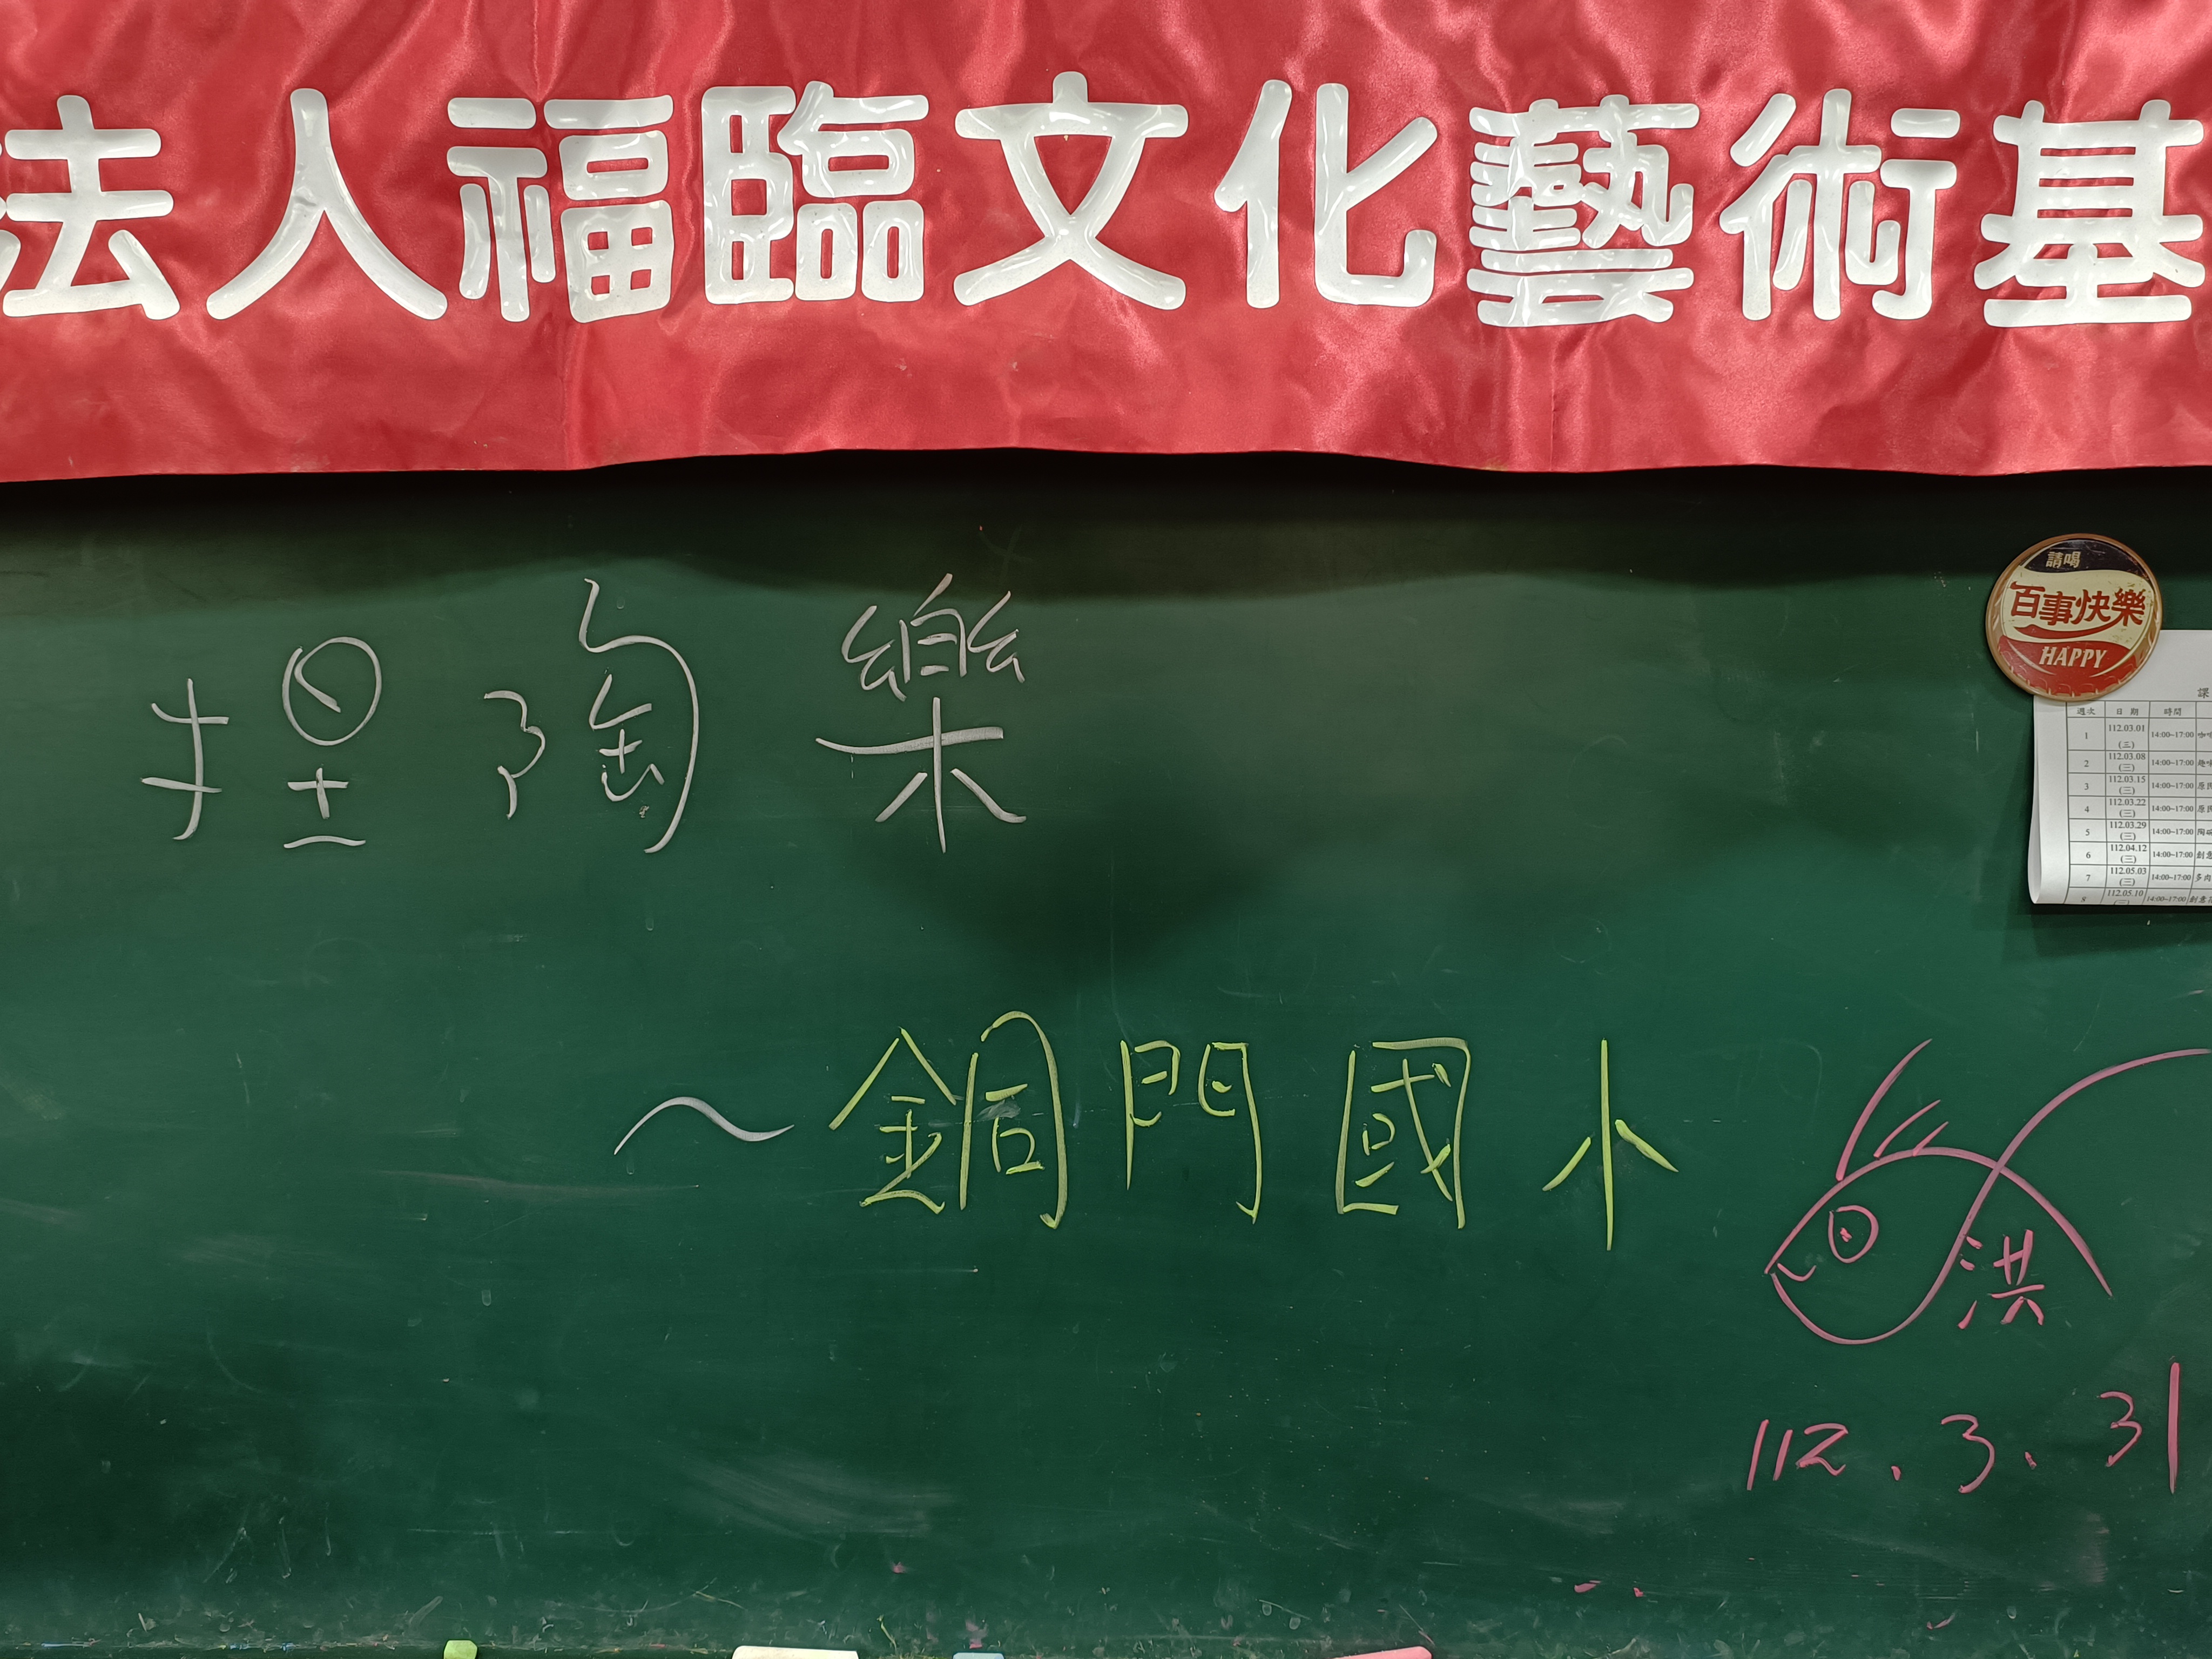 法人福臨文化藝術基
捏陶樂
~銅門國小
洪
112、3、31
請喝
百事快樂
HAPPY
課
週次 日期 時間
1 112.03.01 (三) 14:00~17:00
2 112.03.08 (三) 14:00~17:00 趣
3 112.03.15 (三) 14:00~17:00 原民
4 112.03.22 (三) 14:00~17:00 原民
5 112.03.29 (三) 14:00~17:00 陶
6 112.04.12 (三) 14:00~17:00 創意
7 112.05.03 (三) 14:00~17:00 多肉
8 112.05.10 14:00~17:00 創意